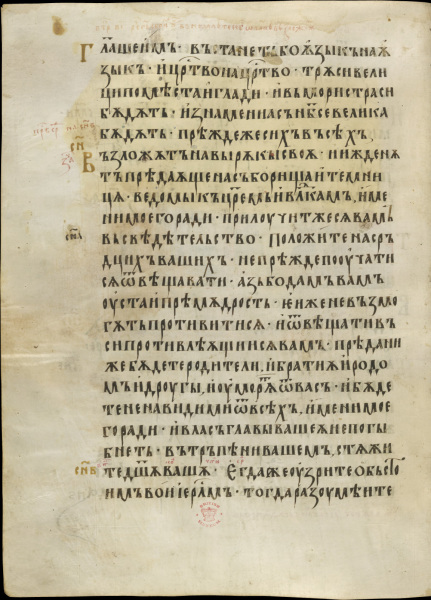 Глаше имъ · въстанетъ бо ѧзыкъ на ѧ
зыкъ · и црⷭ҇тво на црⷭ҇тво · трѫси вели
ци по мѣста и глади · и въ мори страси
бѫдѫтъ · и знамениа съ нб҃се велика
бѫдѫтъ · прѣжде же сихъ въсѣхъ ·
възложѫтъ на вы рѫкы своѧ · и ижденѫ
тъ прѣдаѫще на съборища и темни
цѧ · ведомы къ цр҃емь и влⷣкамъ, име
ни моего ради · прилоучит же сѧ вамъ
въ свѣдѣтельство · положите на ср
дцихъ вашихъ · не прѣжде пооучати
сѧ ѿвѣщавати · азъ бо дамъ вамъ
оуста и прѣмѫдрость · еиже не възмо
гѫтъ противитисѧ · и ѿвѣщати въ
си противлѣѫщиисѧ вамъ · прѣдани
же бѫдете родители, и братиѫ и родо
мъ и дроугы, и оуморѧт ѿ васъ · и бѫде
те ненавидими ѿ всѣхъ, имени мое
го ради · и власъ главы вашеѧ не погы
бнетъ · въ трьпѣни вашемъ, стѧжи
те дш҃ѧ вашѧ · Егда же оузрите обьсто
имъ вои іерлⷭ҇мъ · тогда разоумѣите